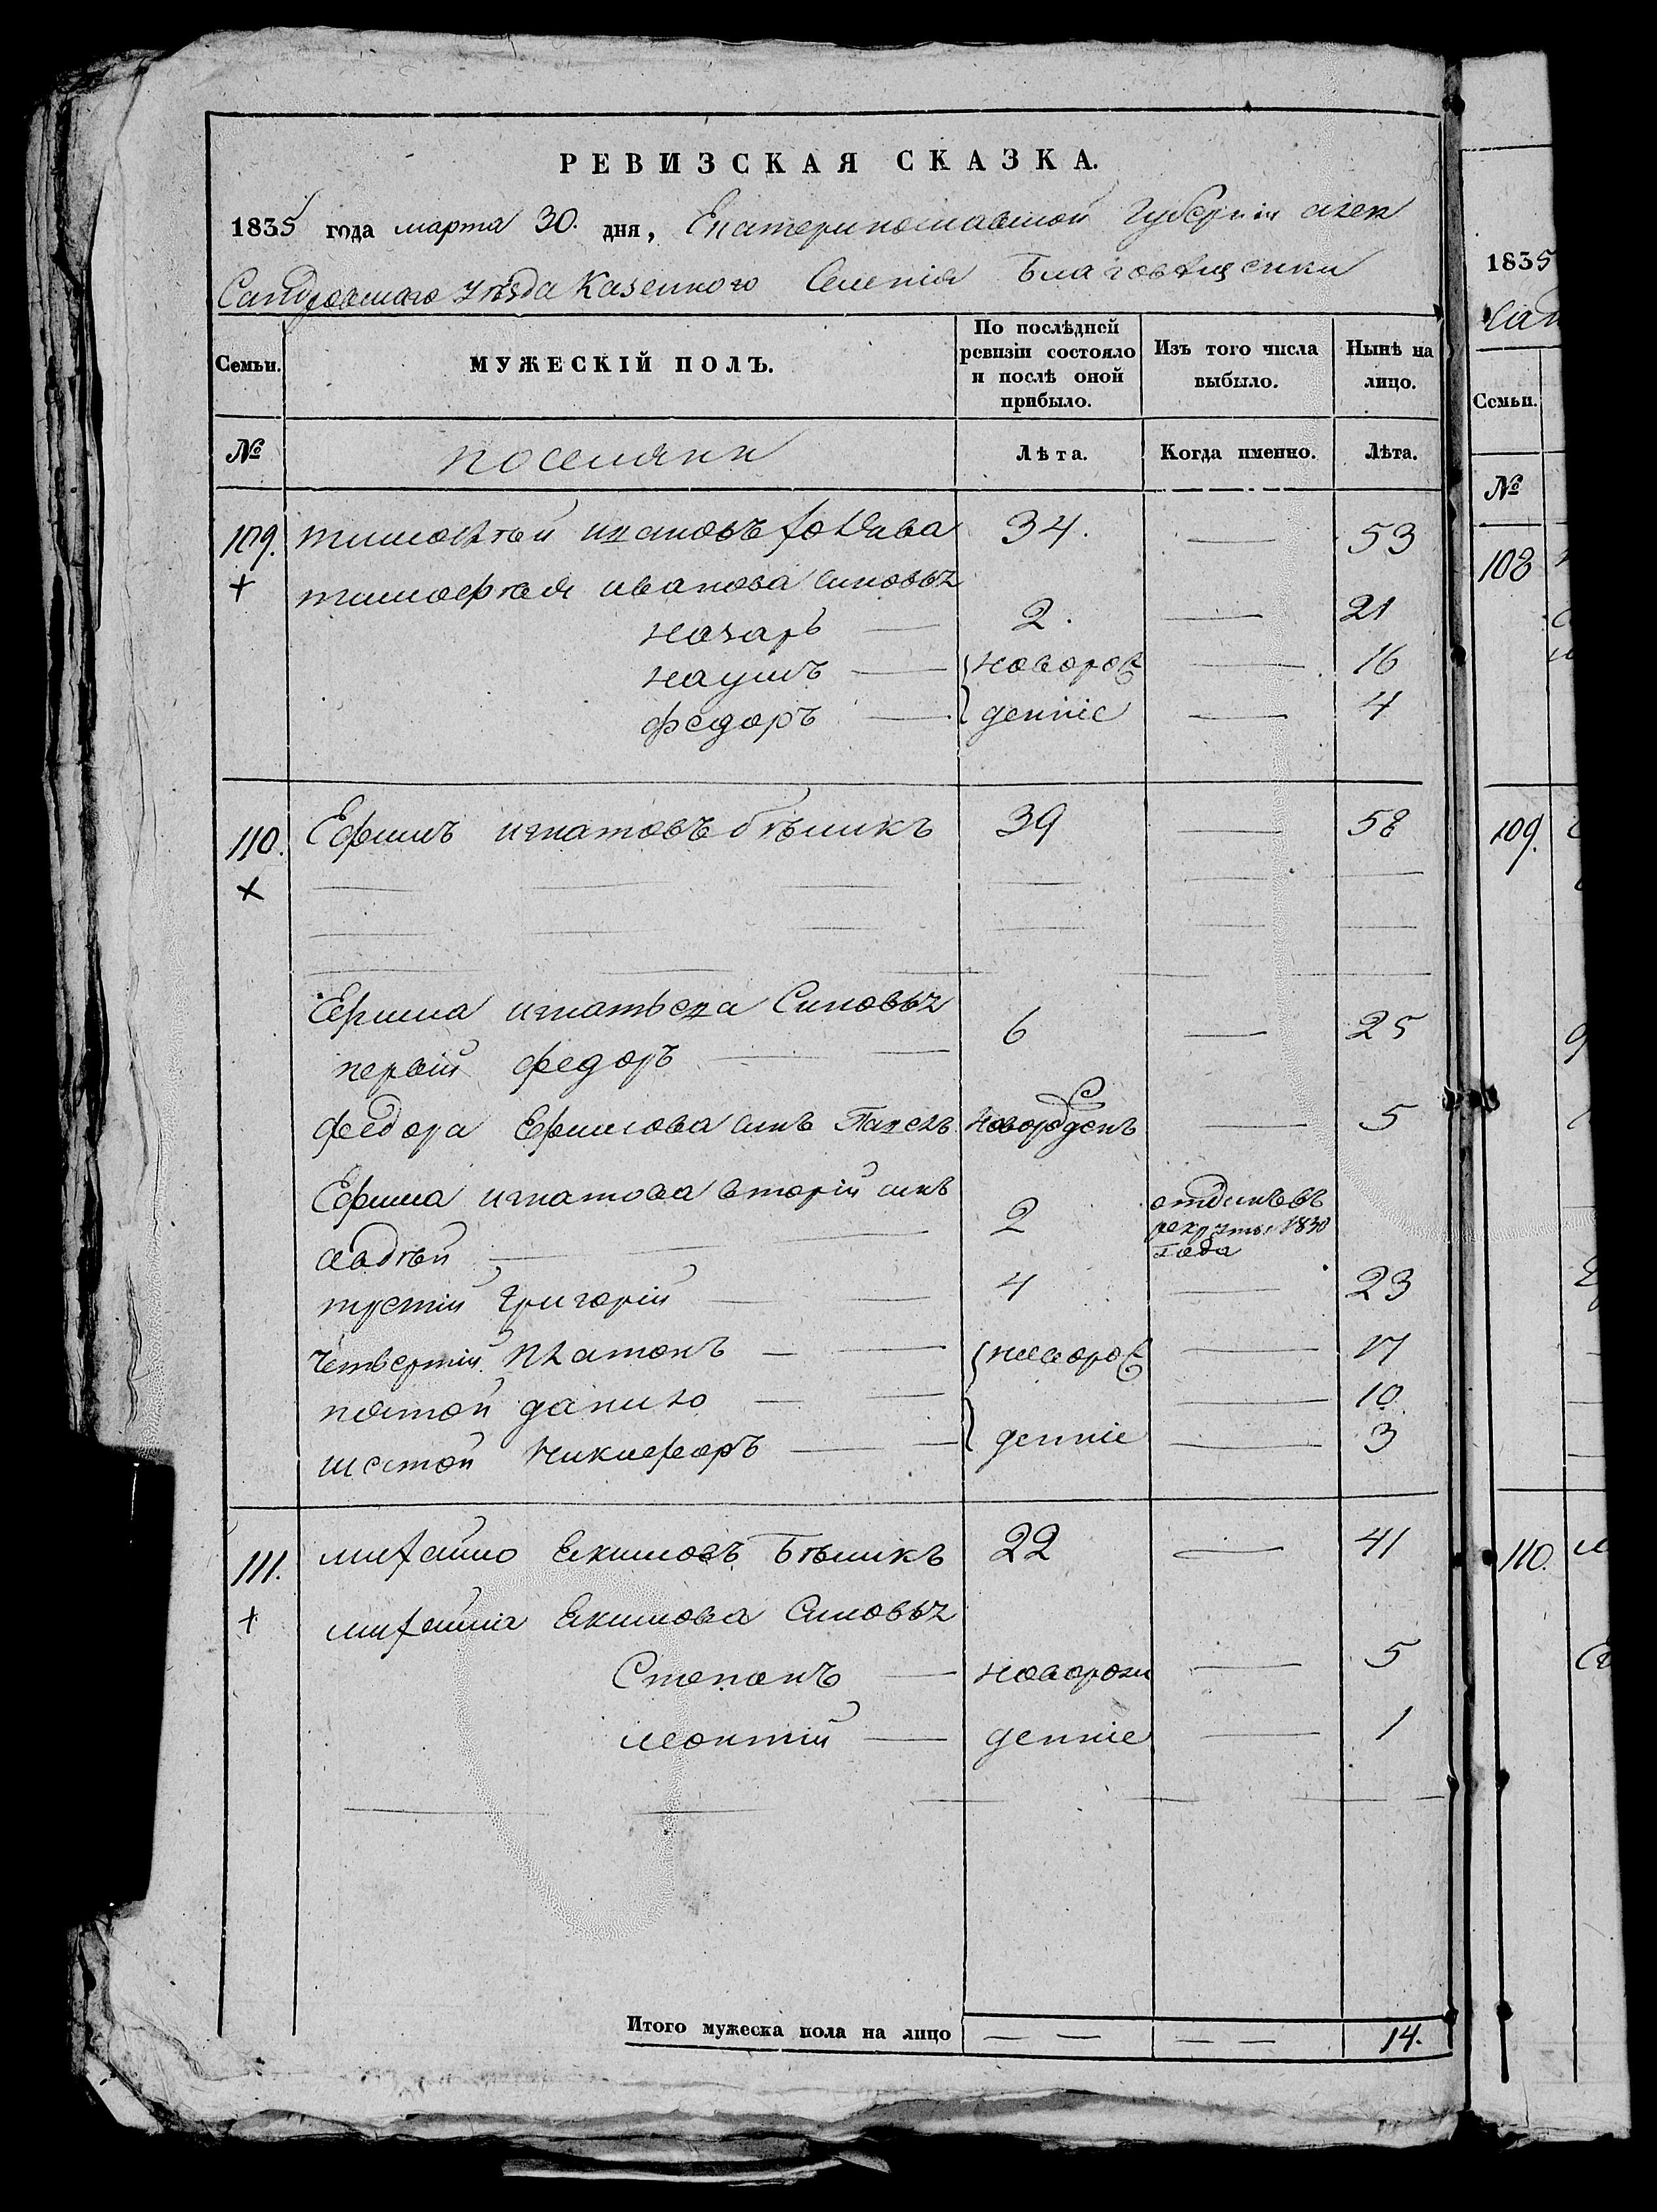 РЕВИЗСКАЯ СКАЗКА.
1835 года марта 30. дня, Екатеринославской Губернии Алек
Сандровскаго уѣзда Казенного Селенія Благовѣщенки
Семьи.
МУЖЕСКІЙ ПОЛЪ.
По послѣдней ревизіи состояло и послѣ оной прибыло.
Изъ того числа выбыло.
Нынѣ на лицо.
№
поселяни
Лѣта.
Когда именно.
Лѣта.
109. тимофѣй ивановъ 34. 53
+ тимофѣя иванова синовья
назаръ 2. 21
наумъ новорож 16
федоръ денніе 4
110. Ефимъ игнатовъ бѣликъ 39 58
+
Ефима игнатьева Синовья
первій федоръ 6 25
федора Ефимова синъ Павелъ новорожденъ 5
Ефима игнатова вторій синъ
авдѣй 2 отданъ въ рекруты 1830 года
третій григорій 4 23
четвертій платонъ новорож 17
пятой данило 10
шестой никифоръ денніе 3
111. михайло Екимовъ Бѣликъ 22 41
+ михайла Екимова Синовья
Степанъ новорож 5
леонтій денніе 1
Итого мужеска пола на лицо 14.
1835
Сан
Семьи.
№
108
109.
110.